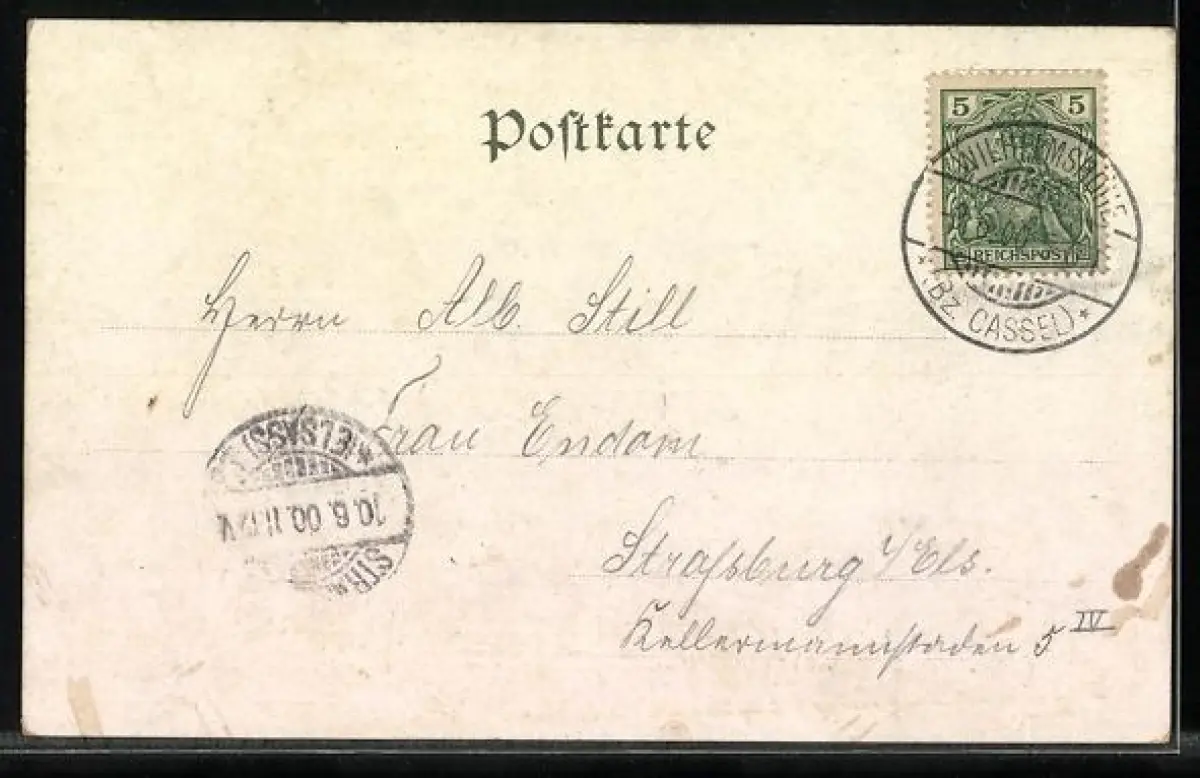 Postkarte
5 5
REICHSPOST
WILHELMSHÖHE
* (BZ CASSEL) *
Herrn Alb. Still
Frau Endom
Straſsburg i/Els.
Kellermannſtaden 5 IV
* (ELSASS)
10.6.00.11-12V.
STR